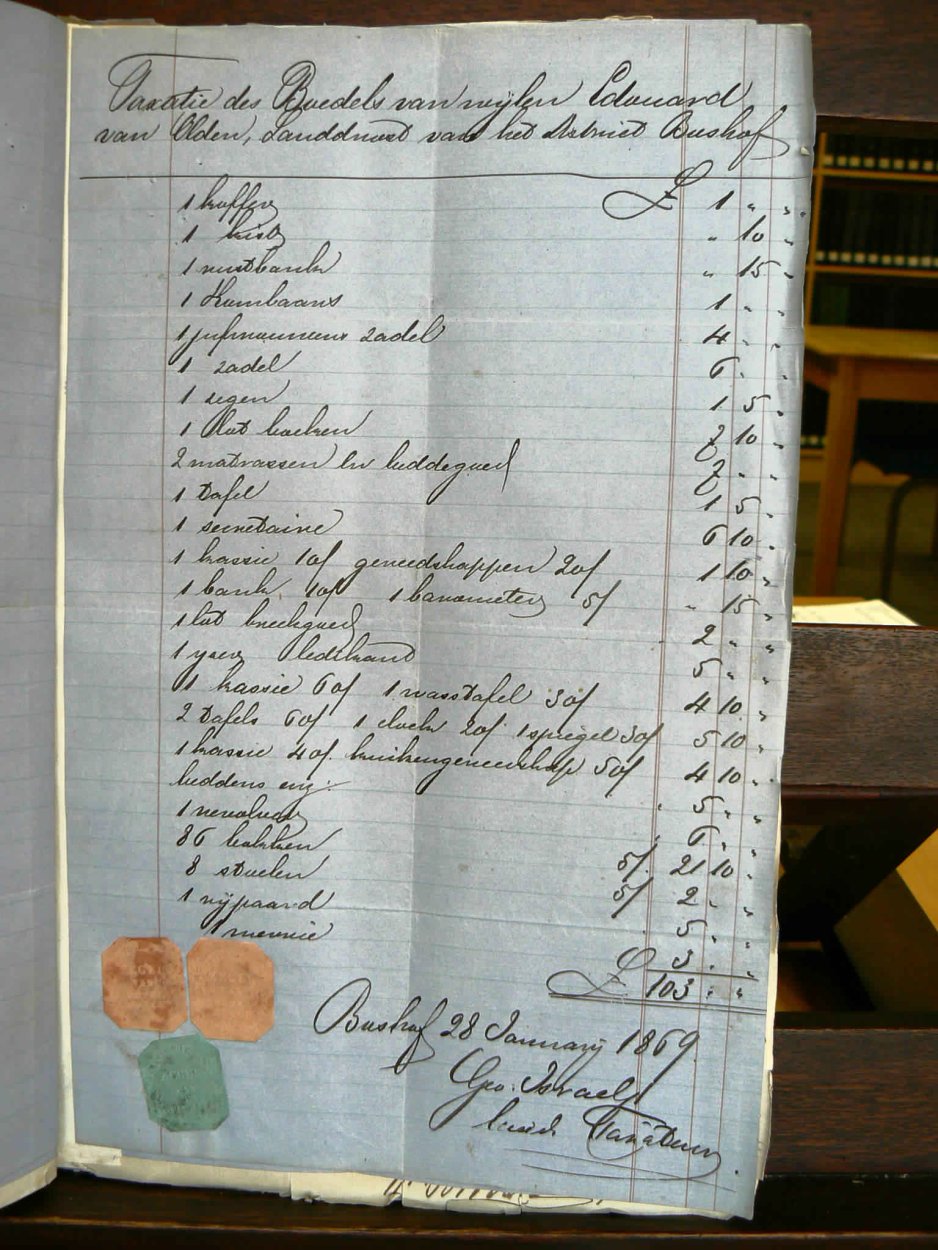 Taxatie des Boedels van wijlen Edouard
van Olden, Landdrost van het District Boshof
1 koffer £ 1 " "
1 kist " 10 "
1 rustbank " 15 "
1 Kombaars 1 " "
1 jufvrouwens zadel 4 " "
1 zadel 6 " "
1 segen 1 5 "
1 lot boeken 2 10 "
2 matrassen en beddegoed 2 " "
1 Tafel 1 5 "
1 secretaire 6 10 "
1 kassie 10/ gereedschappen 20/ 1 10 "
1 bank 10/ 1 barometer 5/ " 15 "
1 lot breekgoed 2 " "
1 yzer ledekant 5 " "
1 kassie 60/ 1 wasstafel 30/ 4 10 "
2 Tafels 60/ 1 clock 20/. 1 spiegel 30/ 5 10 "
1 kassie 40/. keukengereedschap 50/ 4 10 "
beddens enz: 5 " "
1 revolver 6 " "
86 bokken 5/. 21 10 "
8 stoelen 5/ 2 " "
1 rijpaard 5 " "
1 merrie 3 " "
£ 103 " "
Boshof 28 January 1869
Geo. Israels
Taxateur